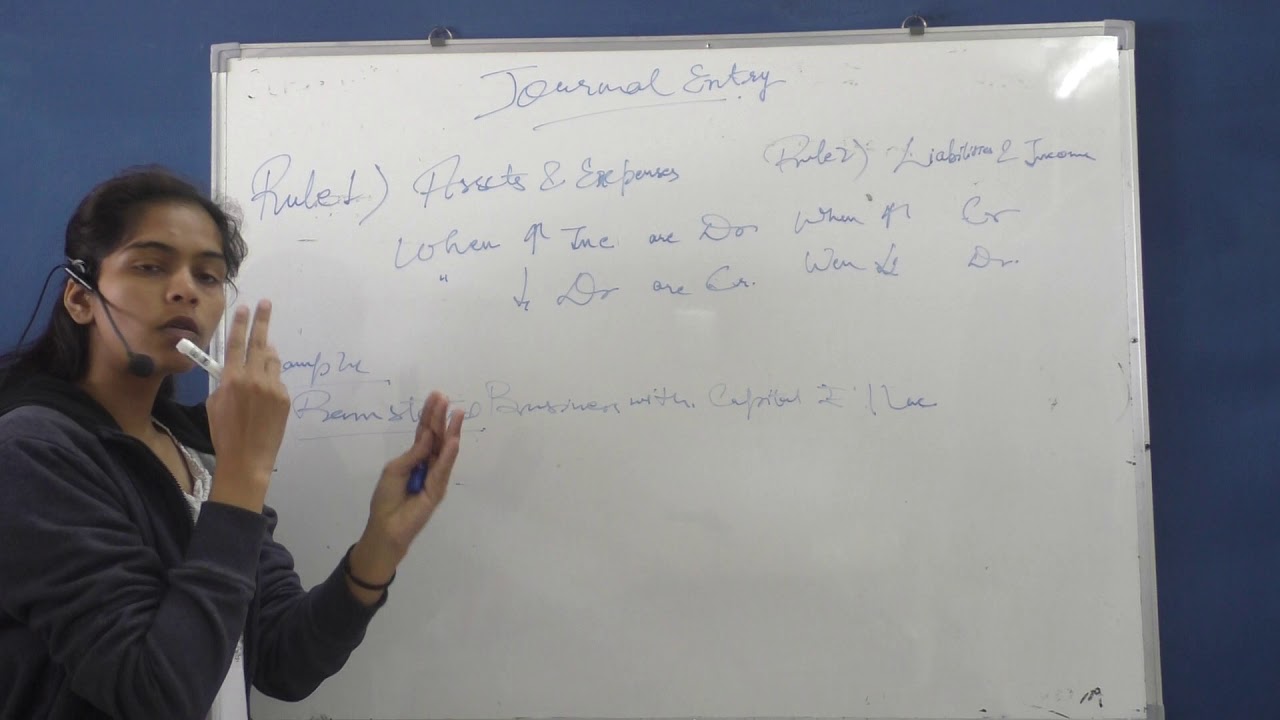 Journal Entry
Rule 1) Assets & Expenses
When ↑ Inc are Dr
" ↓ Dr are Cr.
Rule 2) Liabilities & Income
When ↑ Cr
Wen ↓ Dr.
ample
Business with Capital ₹ 1 Lac